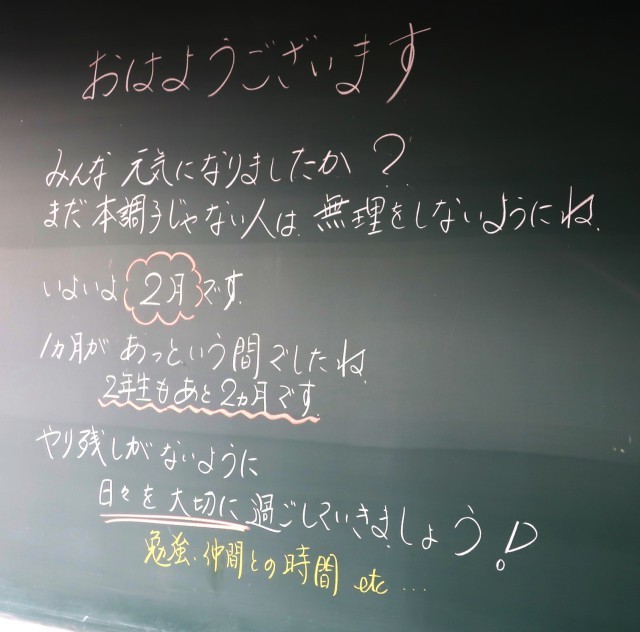 おはようございます
みんな 元気になりましたか?
まだ本調子じゃない人は、無理をしないようにね。
いよいよ 2月 です。
1ヵ月が あっという間でしたね。
2年生もあと2ヵ月です。
やり残しがないように
日々を大切に過ごしていきましょう!
勉強、仲間との時間 etc...